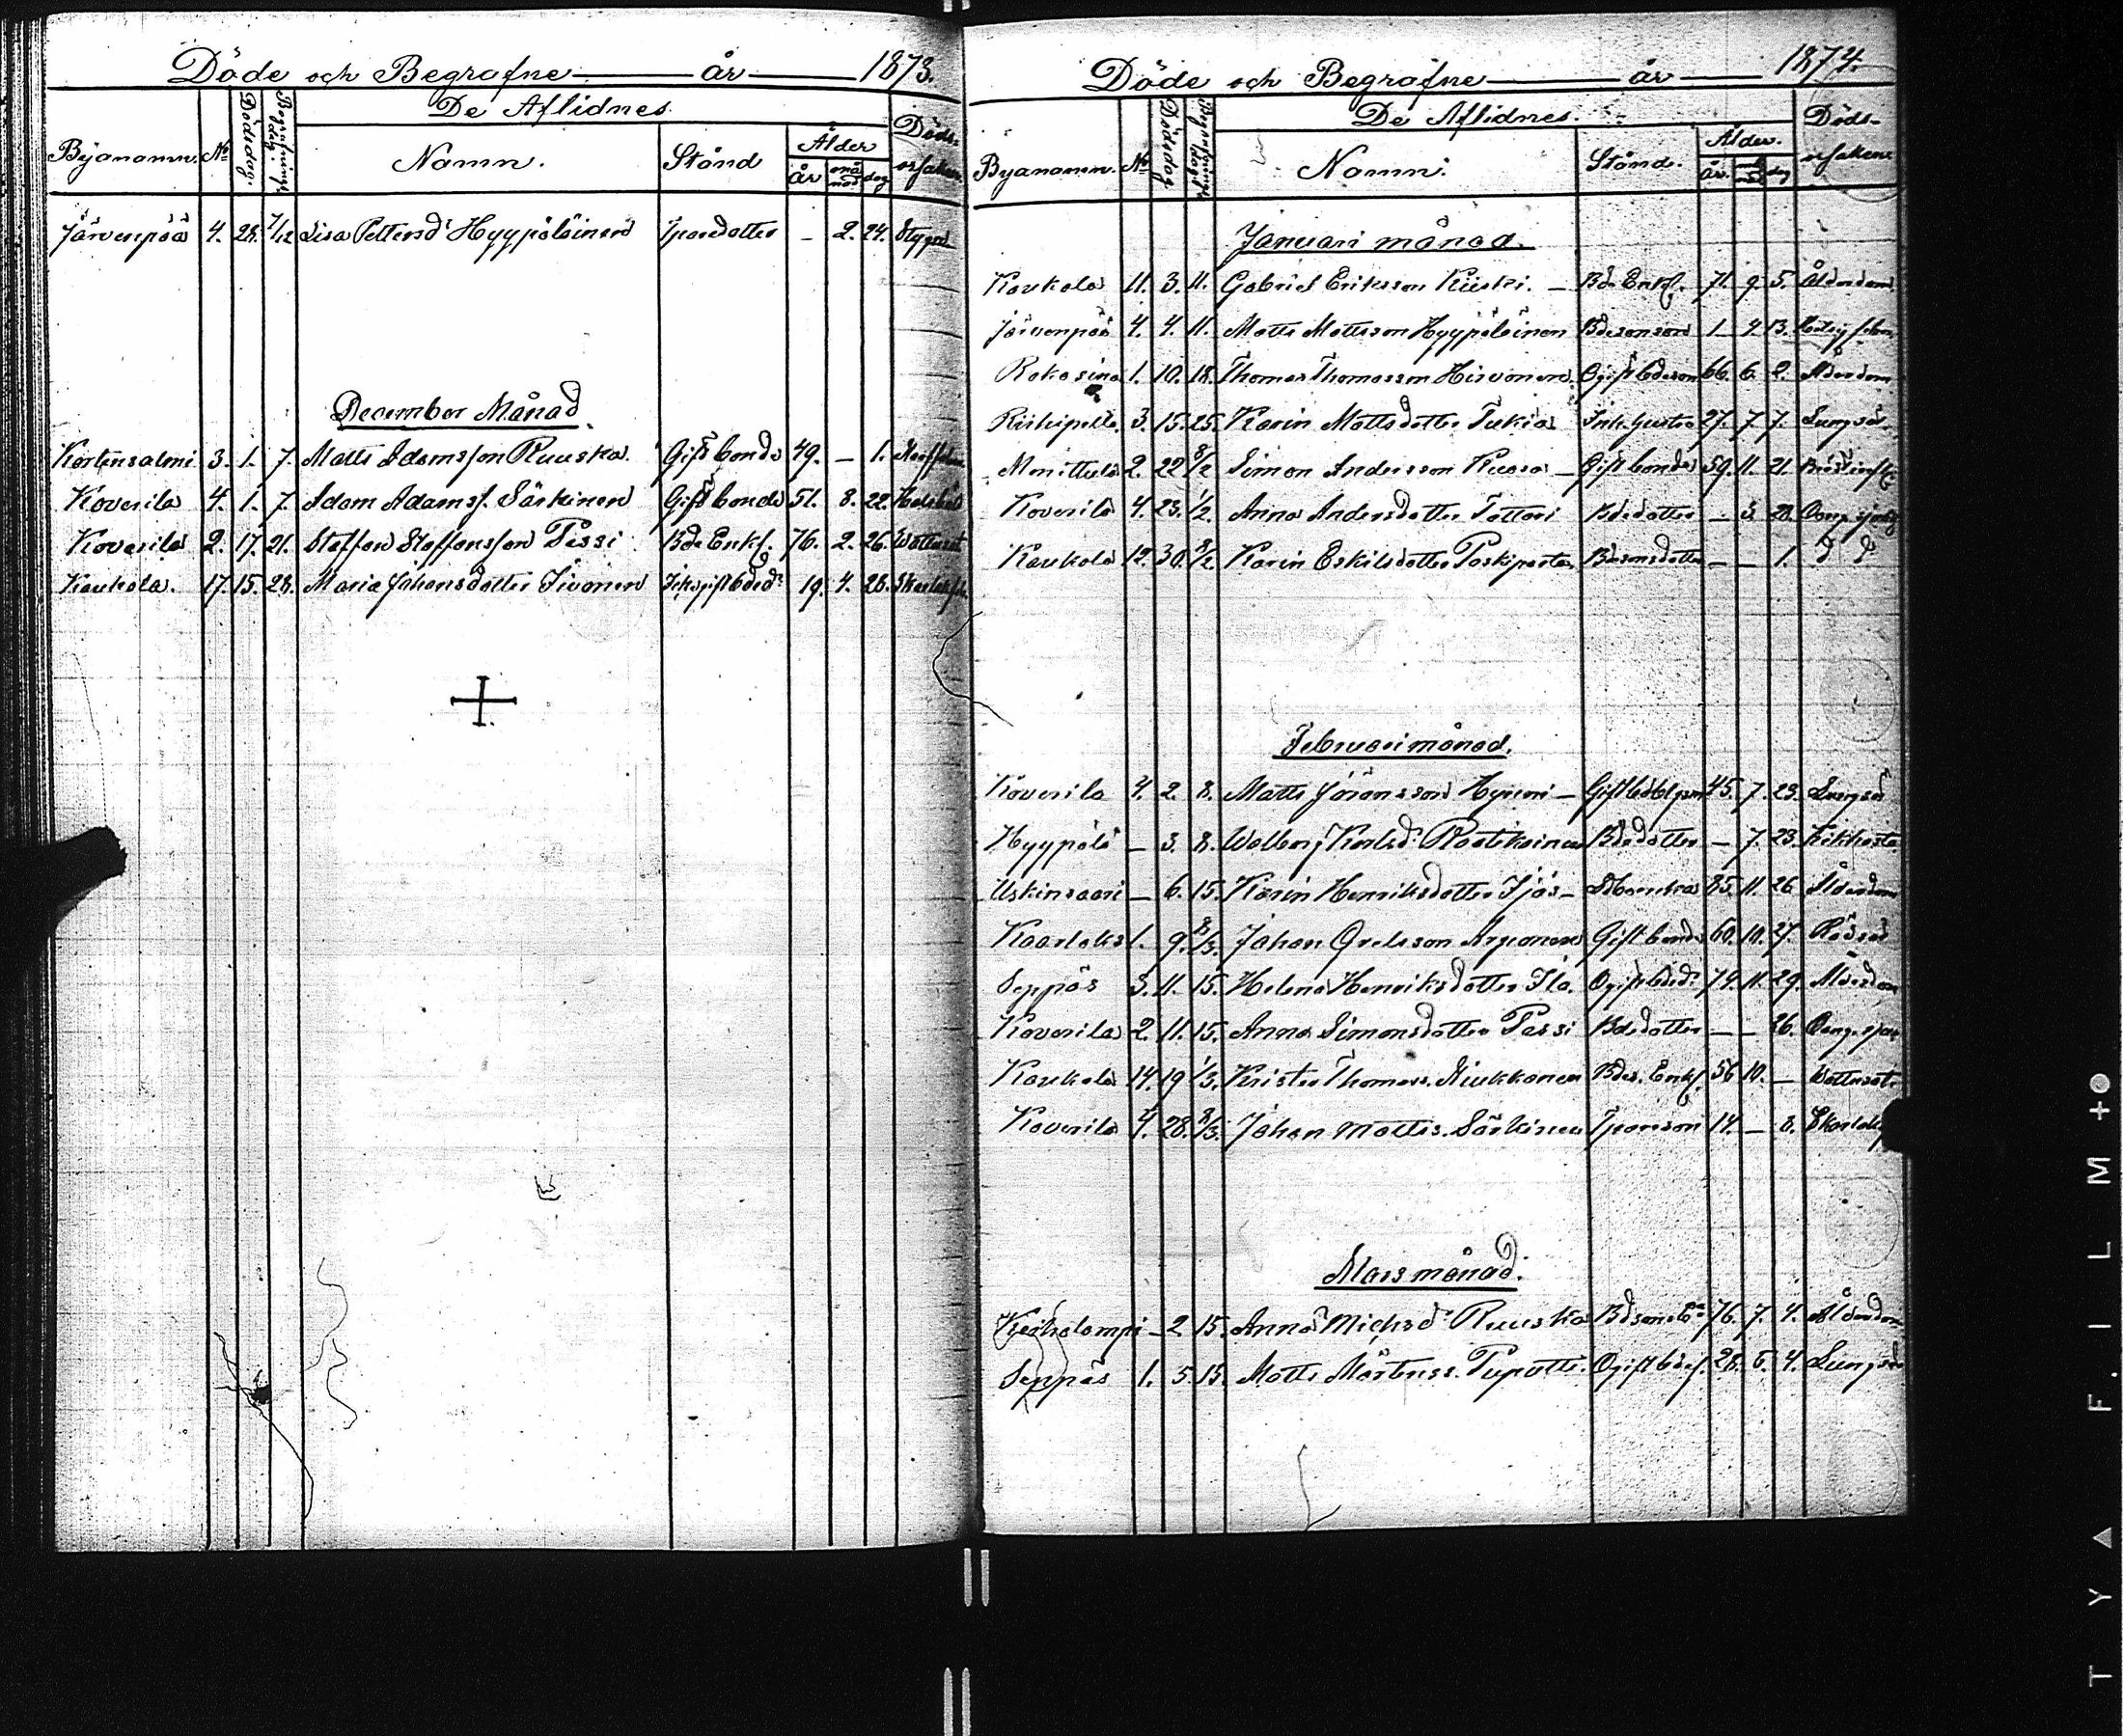 Döde och Begrafne år 1873.
De Aflidnes
Byanamn. No Dödsdag. Begrafningsdag. Namn. Stånd Ålder år månad dag Dödsorsaken.
Järvenpää 4. 28. 7/12 Lisa Pettersd: Hyypöläinen Sparedotter – 2. 24. Stygn
December Månad.
Kortensalmi 3. 1. 7. Matts Adamsson Ruuska. Gift bonde 49. – 1.
Koverila 4. 1. 7. Adam Adamss. Särkinen Gift bonde 51. 8. 22.
Koverila 2. 17. 21. Staffan Staffansson Pessi Bde Enkl. 76. 2. 26. Wattusot
Kaukola. 17. 15. 28. Maria Johansdotter Sivonen 19. 4. 28.
Döde och Begrafne år 1874.
De Aflidnes.
Byanamn. No Dödsdag Begrafningsdag Namn. Stånd. Ålder. år. månad dag Dödsorsaken
Januari månad.
Kaukola 11. 3. 11. Gabriel Eriksson Kiiski. – Bde Enkl. 71. 9. 5. Ålderdom
Järvenpää 4. 4. 11. Matts Mattsson Hyypöläinen Bdesonson 1. 4. 13.
1. 10. 18. Thomas Thomasson Hirvonen. Ogift bdeson 66. 6. 2. Ålderdom
Riihipelto 3. 15. 25. Karin Mattsdotter Tukia Inh. hustru 27. 7. 7. Lungsot
Monittula 2. 22 8/2 Simon Andersson Kuosa – Gift bonde 59. 11. 21.
Koverila 4. 23. 1/2. Anna Andersdotter Tattari Bdedotter – 3. 28.
Kaukola 12. 30. 8/2 Karin Eskilsdotter Paskiparta Bdesonsdotter – – 1. d d
Februari månad.
Koverila 4. 2. 8. Matts Jöransson – 45. 7. 23. Lungsot
Hyypölä – 3. 8. Walborg Karlsd: Raatikainen Bdedotter – 7. 23. Kikhosta
Uskinsaari – 6. 15. Karin Henriksdotter Ijäs – 85. 11. 26 Ålderdom
Kaarlaks 1. 9. 8/3. Johan Gretsson Gift bonde 60. 10. 27. Rödsot
Seppäs 3. 11. 15. Helena Henriksdotter Ila. Ogift bded: 74. 11. 29. Ålderdom
Koverila 2. 11. 15. Anna Simonsdotter Pessi Bdedotter – – 26.
Kaukola 14. 19 1/3. Krister Thomass. Niukkanen Bde. Enkl. 56 10. – Wattusot
Koverila 4. 28. 8/3. Johan Mattss. Särkinen 14. – 8.
Mars månad.
Kerholampi – 2 15. Anna Michsd: Ruuska 76. 7. 4. Ålderdom
Seppäs 1. 5. 15. Matts Mårtenss. Puputti. Ogift bdes. 28. 6. 4. Lungsot
TYÄ FILM